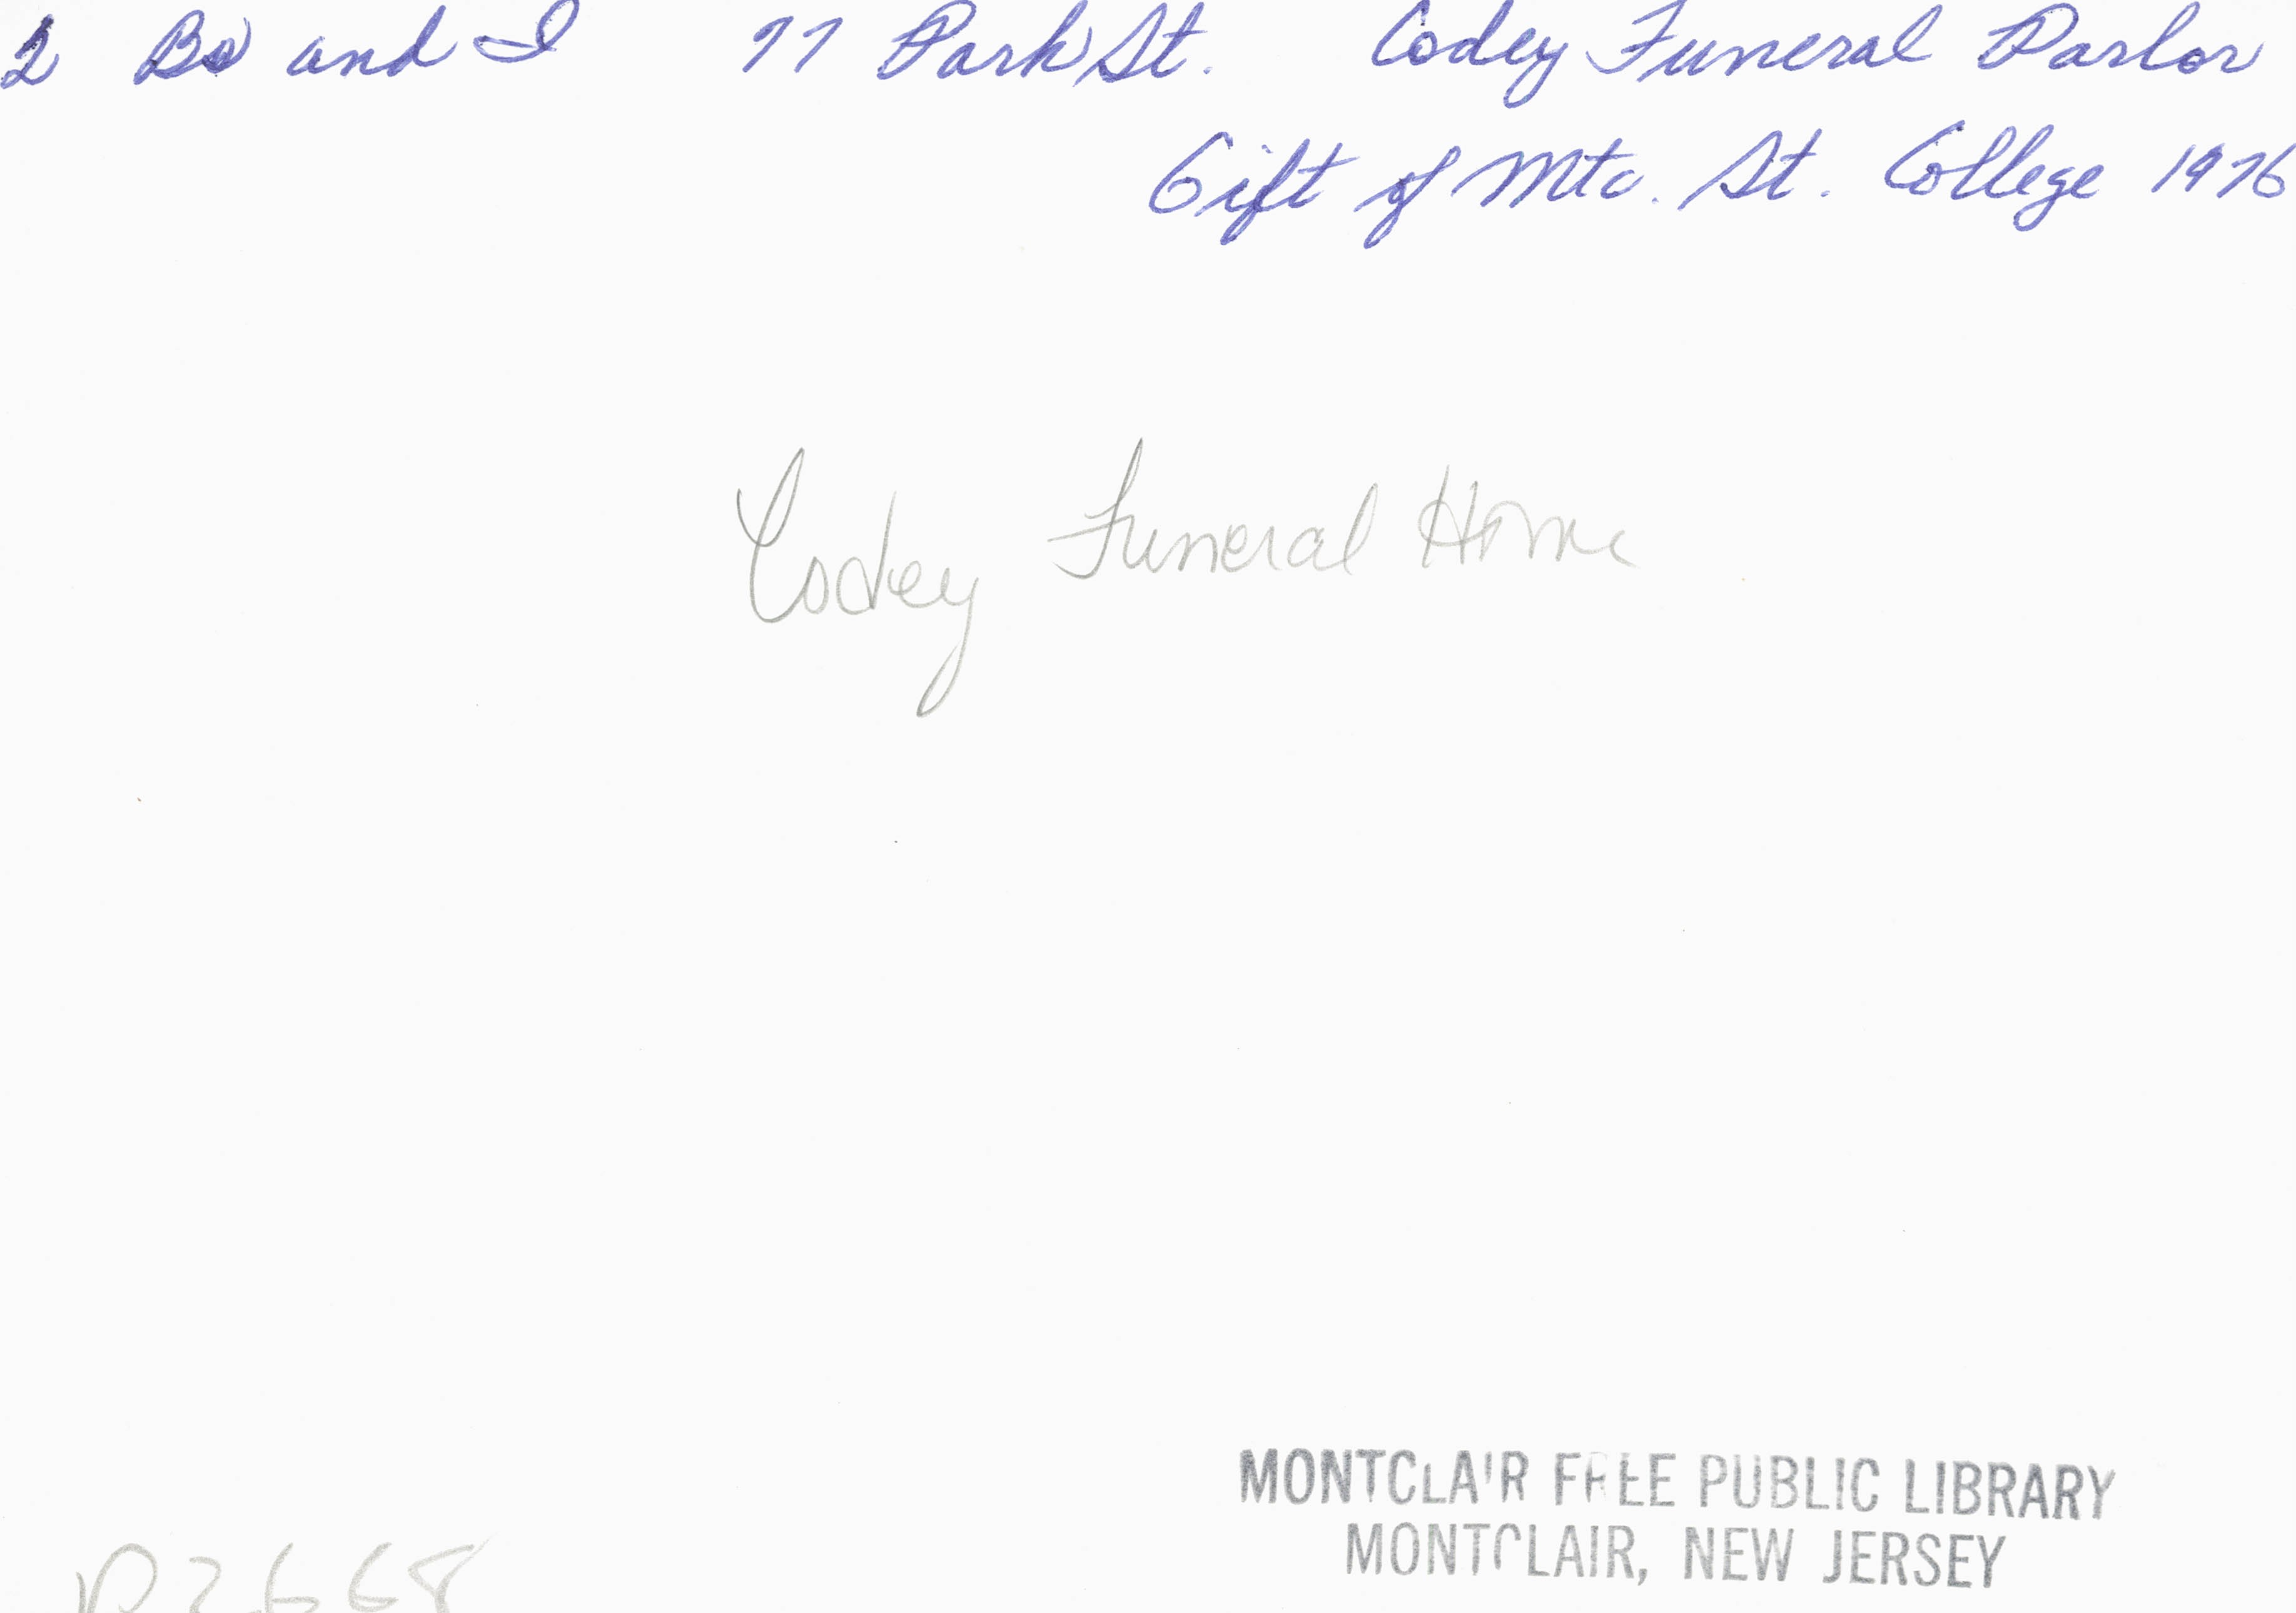 2 Bo and I 77 Park St. Codey Funeral Parlor
Gift of Mtc. St. College 1976
Codey Funeral Home
MONTCLAIR FREE PUBLIC LIBRARY
MONTCLAIR, NEW JERSEY